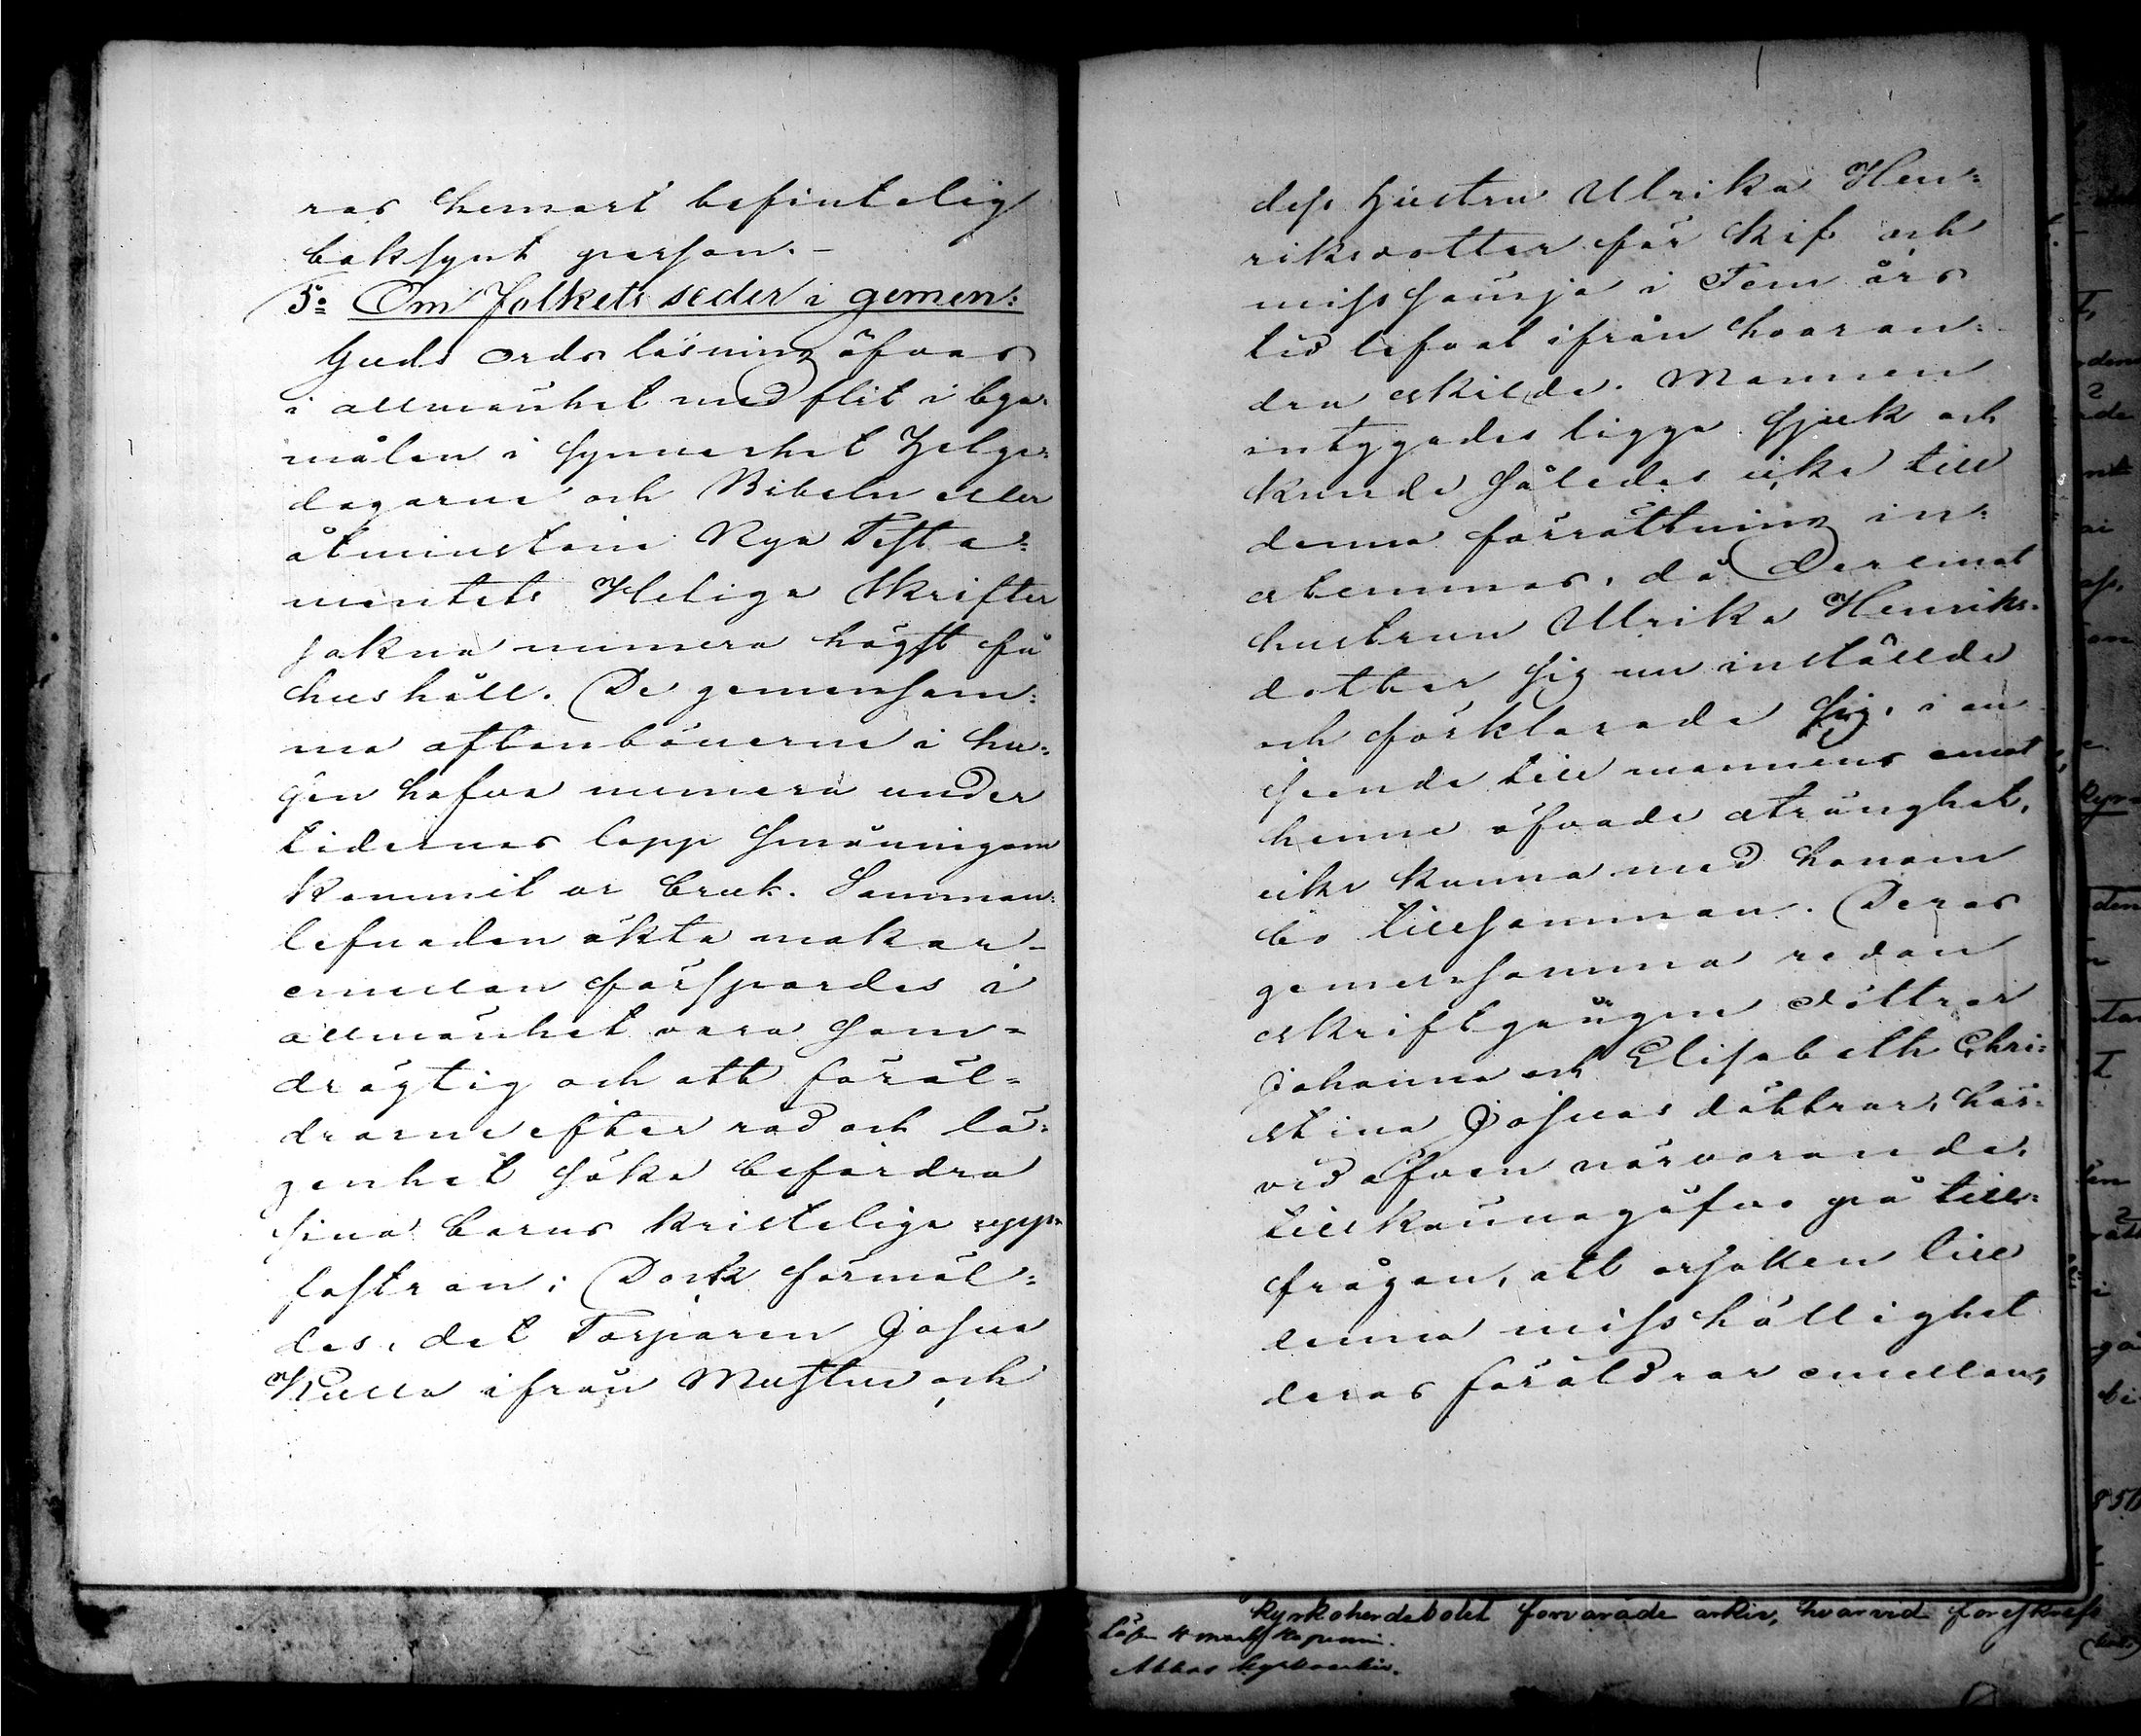 ras hemort befintelig
boksynt person. –
5o Om Folkets seder i gemen:
Guds ords läsning öfvas
i allmänhet med flit i bya-
målen i synnerhet Helge-
dagarne och Bibeln eller
åtminstone Nya Testa-
mentets Heliga Skrifter
sakna numera högst få
hushåll. De gemensam-
ma aftonbönerne i hu-
sen hafva numera under
tidernas lopp småningom
kommit ur bruk. Samman-
lefnaden äkta makar
emellan försports i
allmänhet vara sam-
drägtig och att föräl-
drarne efter råd och lä-
genhet söka befordra
sina barns kristeliga upp-
fostran; Dock förmäl-
des, det Torparen Josua
Kulla ifrån Mustus och
dess Hustru Ulrika Hen-
riksdotter för kif och
misssämja i Fem års
tid lefvat ifrån hvaran-
dra skilde. Mannen
intygades ligga sjuk och
kunde således icke till
denna förrättning in-
stemmas, då Deremot
hustrun Ulrika Henriks-
dotter sig nu inställde
och förklarade sig, i an-
seende till mannens emot
henne öfvade stränghet,
icke kunna med honom
bo tillsamman. Deras
gemensamma redan
skriftgångne döttrar
Johanna och Elisabeth Chri-
stina Josuas döttrar, här-
vid äfven närvarande,
tillkännagåfvo på till-
frågan, att orsaken till
denna misshällighet
deras föräldrar emellan,
kyrkoherdebolet förvarade arkiv, hvarvid föreskrefs